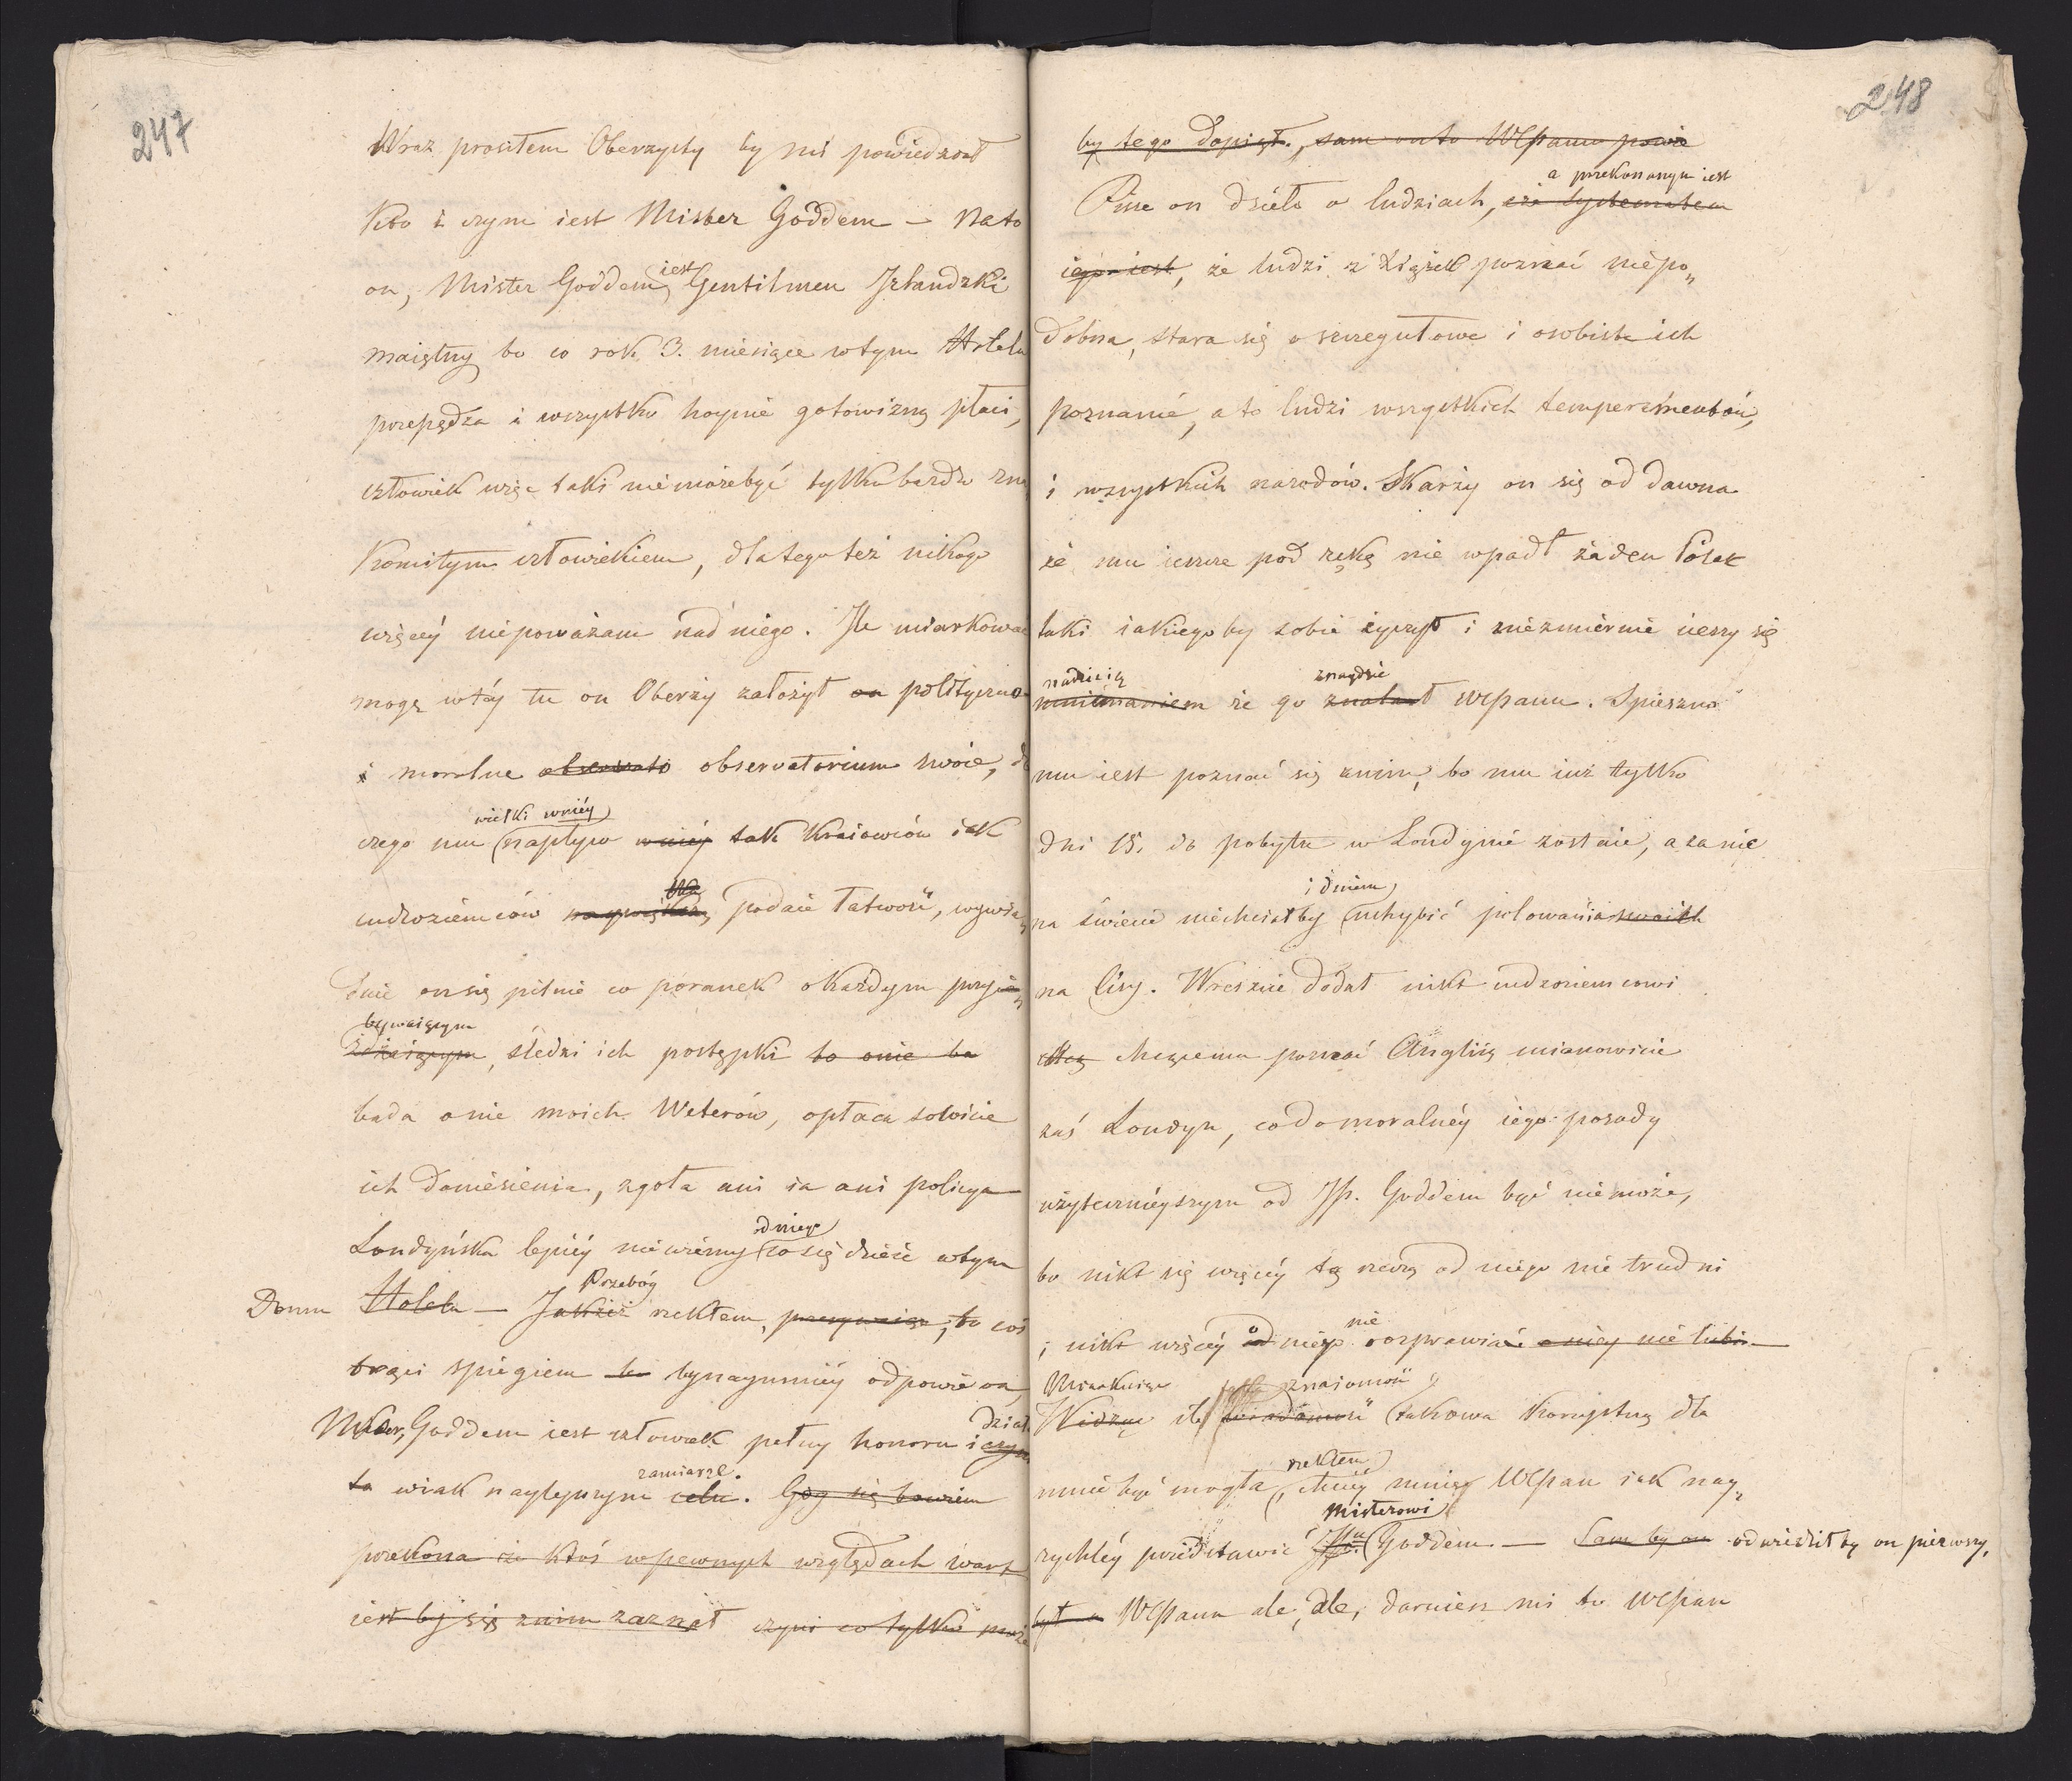 247
Wraz prosiłem Oberzysty by mi powiedział
Kto i czym iest Mister Goddem – Na to
on, Mister Goddem iest Gentilmen Jrlandzki
maiętny bo co rok 3. miesiące w tym Hotelu
przepędza i wszystko hoynie gotowizną płaci,
człowiek więc taki nie może być tylko bardzo zna
komitym człowiekiem, dla tego też nikogo
więcéy nie poważam nad niego. Jle miarkować
mogę w téy tu on Oberży założył on polityczno
i moralne observato observatorium swoie, do
czego mu wielki wniéy napływ wniéy tak Kraiowców iak
cudzoziemców podaie łatwość, wywia
duie on się pilnie co poranek o każdym przyie
żdżaiącym bywaiącym, śledzi ich postępki to o nie ba
bada o nie moich Weterów, opłaca sowicie
ich doniesienia, zgoła ani ia ani policya
Londyńska lepiéy nie wiémy od niego co się dzieie w tym
Domu Hotelu — Jakżeż Przebóg rzekłem, to coś
trąci spiegiem to bynaymniéy odpowie on,
Mister, Goddem iest człowiek pełny honoru i czyn działa
to wiak naylepszym celu. zamiarze. Gdy się bowiem
przekona że ktoś w pewnych względach wart
iest by się znim zaznał czyni co tylko może
248
by tego dopiął., sam on to WCPanu powie
Pisze on dzieło o ludziach, a przekonanym iest że systematem
iego iest, że ludzi z Xiążek poznać niepo„
dobna, stara się o szczegułowe i osobiste ich
poznanie, a to ludzi wszystkich temperamentów,
i wszystkich narodów. Skarży on się od dawna
że mu ieszcze pod rękę nie wpadł żaden Polak
taki iakiego by sobie życzył i niezmiernie cieszy się
nadzieią mniemaniem że go znaydzie znalazł w WCPanu. Spieszno
mu iest poznać się znim, bo mu iuż tylko
dni 15. do pobytu w Londynie zostaie, a za nic
na świecie niechciałby i dniem uchybić polowania swoich
na lisy. Wreszcie dodał nikt cudzoziemcowi
chcą chcącemu poznać Angliią mianowicie
zaś Londyn, co do moralnéy iego posady
użytecznieyszym od JP. Goddem być nie może,
bo nikt się więcéy tą rzeczą od niego nie trudni
i nikt więcéy od niego o nie rozprawiać o niéy nie lubi —
Miarkuiąc Widzę ile wiadomość znaiomość takowa korzystną dla
mnie być mogła, rzekłem chciéy mnie WCPan iak nay„
rychléy przedstawić JPu Misterowi Goddem — Sam by on odwiedziłby on pierwszy,
był u WCPana ale, ale, daruiesz mi to WCPan